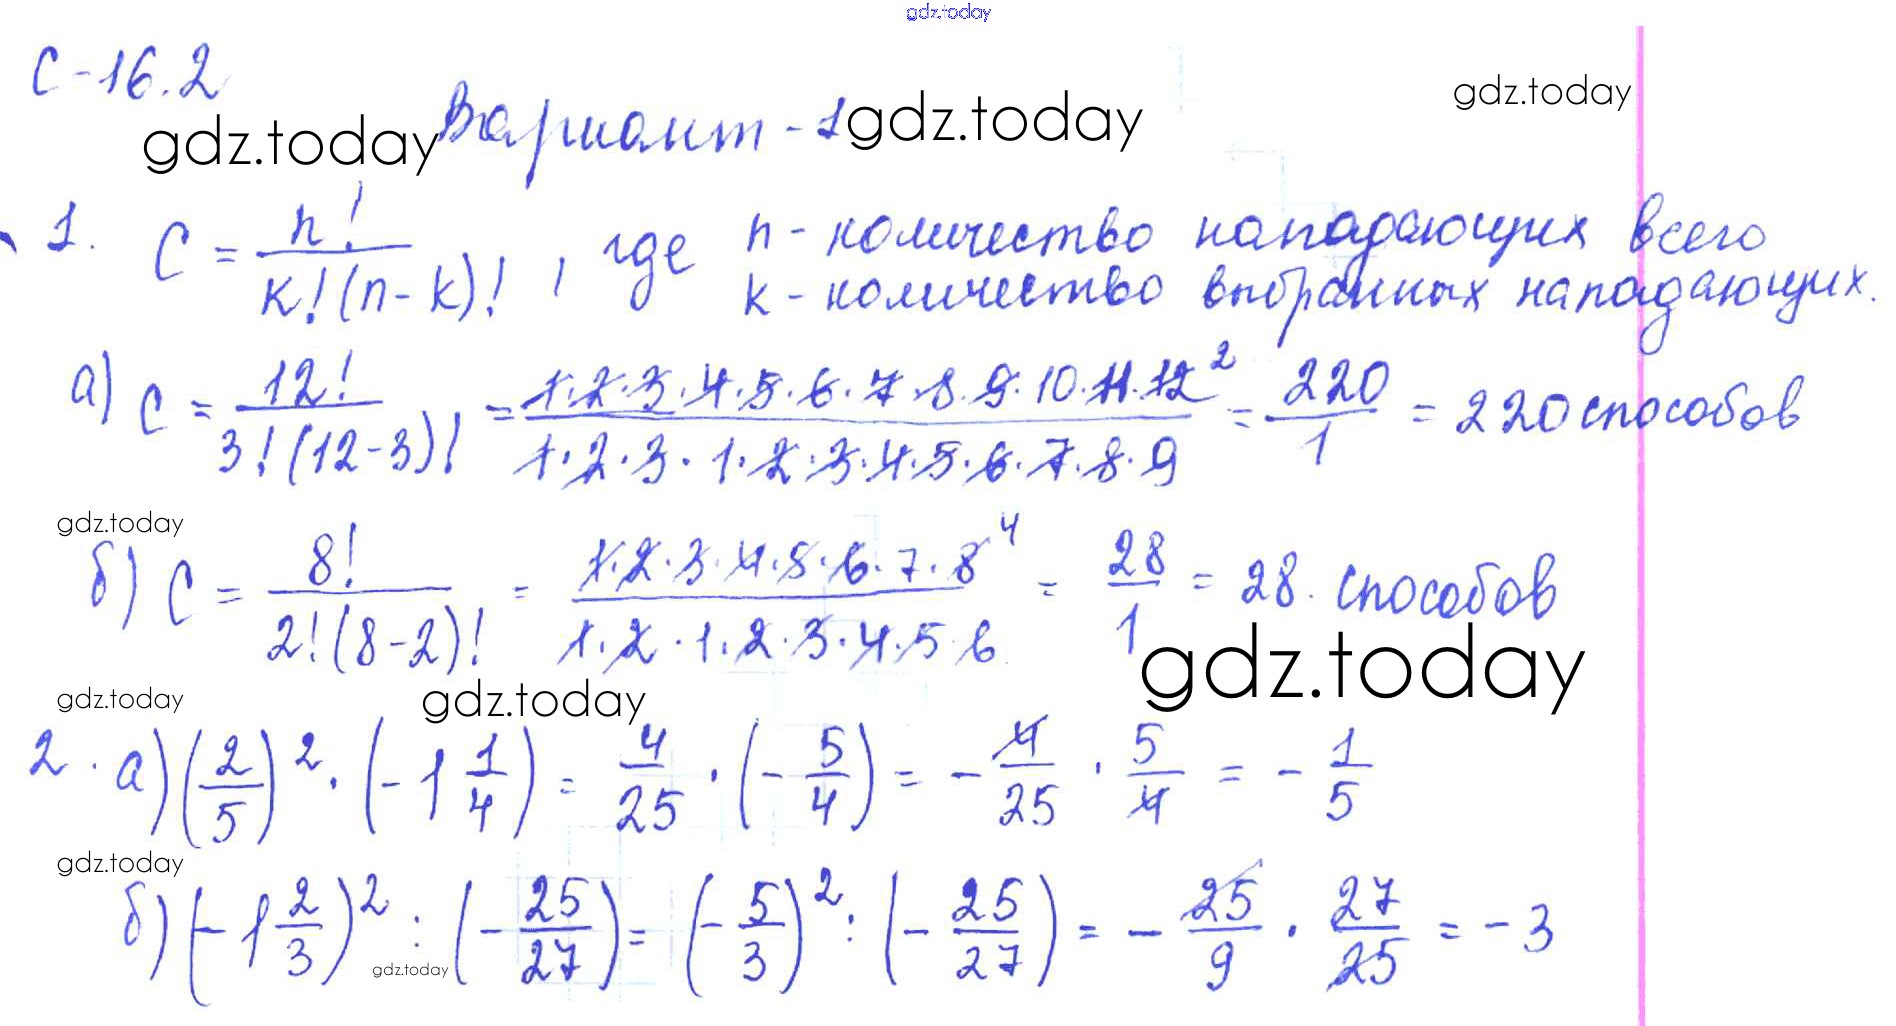 gdz.today
С-16.2
gdz.today Вариант-1 gdz.today gdz.today
1. C = n! / k!(n-k)! , где n - количество нападающих всего
k - количество выбранных нападающих.
а) C = 12! / 3!(12-3)! = 1·2·3·4·5·6·7·8·9·10·11·12² / 1·2·3·1·2·3·4·5·6·7·8·9 = 220/1 = 220 способов
gdz.today
б) C = 8! / 2!(8-2)! = 1·2·3·4·5·6·7·8⁴ / 1·2·1·2·3·4·5·6 = 28/1 = 28. способов
gdz.today
gdz.today gdz.today
2. а) (2/5)² · (-1 1/4) = 4/25 · (-5/4) = - 4/25 · 5/4 = - 1/5
gdz.today
б) (-1 2/3)² : (-25/27) = (-5/3)² : (-25/27) = - 25/9 · 27/25 = -3
gdz.today